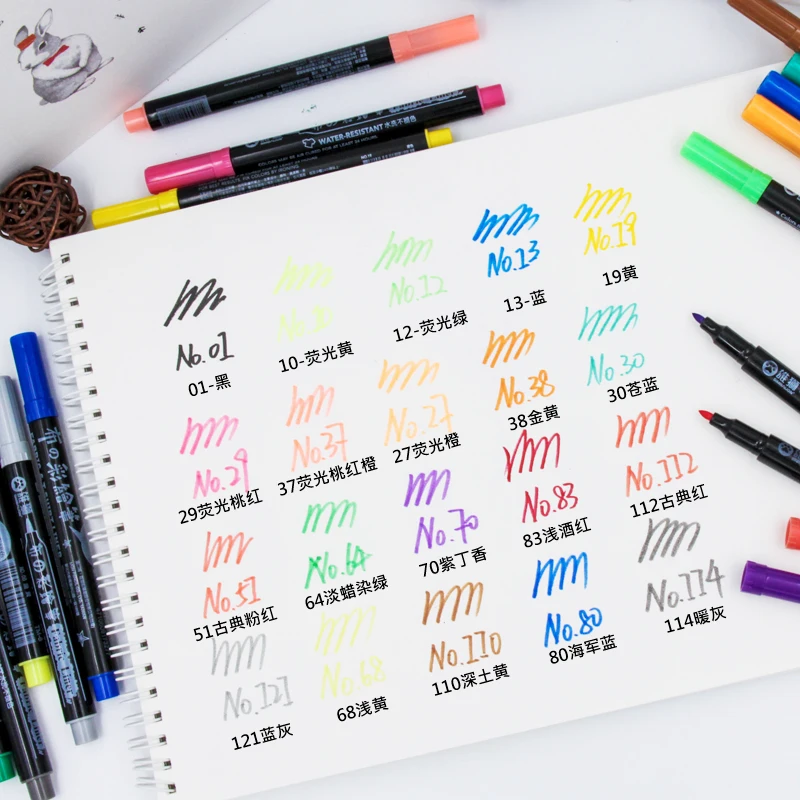 WATER-RESISTANT 水洗不褪色
No.01
01-黑
10-荧光黄
No.12
12-荧光绿
No.13
13-蓝
No.19
19黄
No.29
29荧光桃红
No.37
37荧光桃红橙
No.27
27荧光橙
No.38
38金黄
No.30
30苍蓝
No.51
51古典粉红
No.64
64淡蜡染绿
No.70
70紫丁香
No.83
83浅酒红
No.112
112古典红
No.121
121蓝灰
No.68
68浅黄
No.110
110深土黄
No.80
80海军蓝
No.114
114暖灰